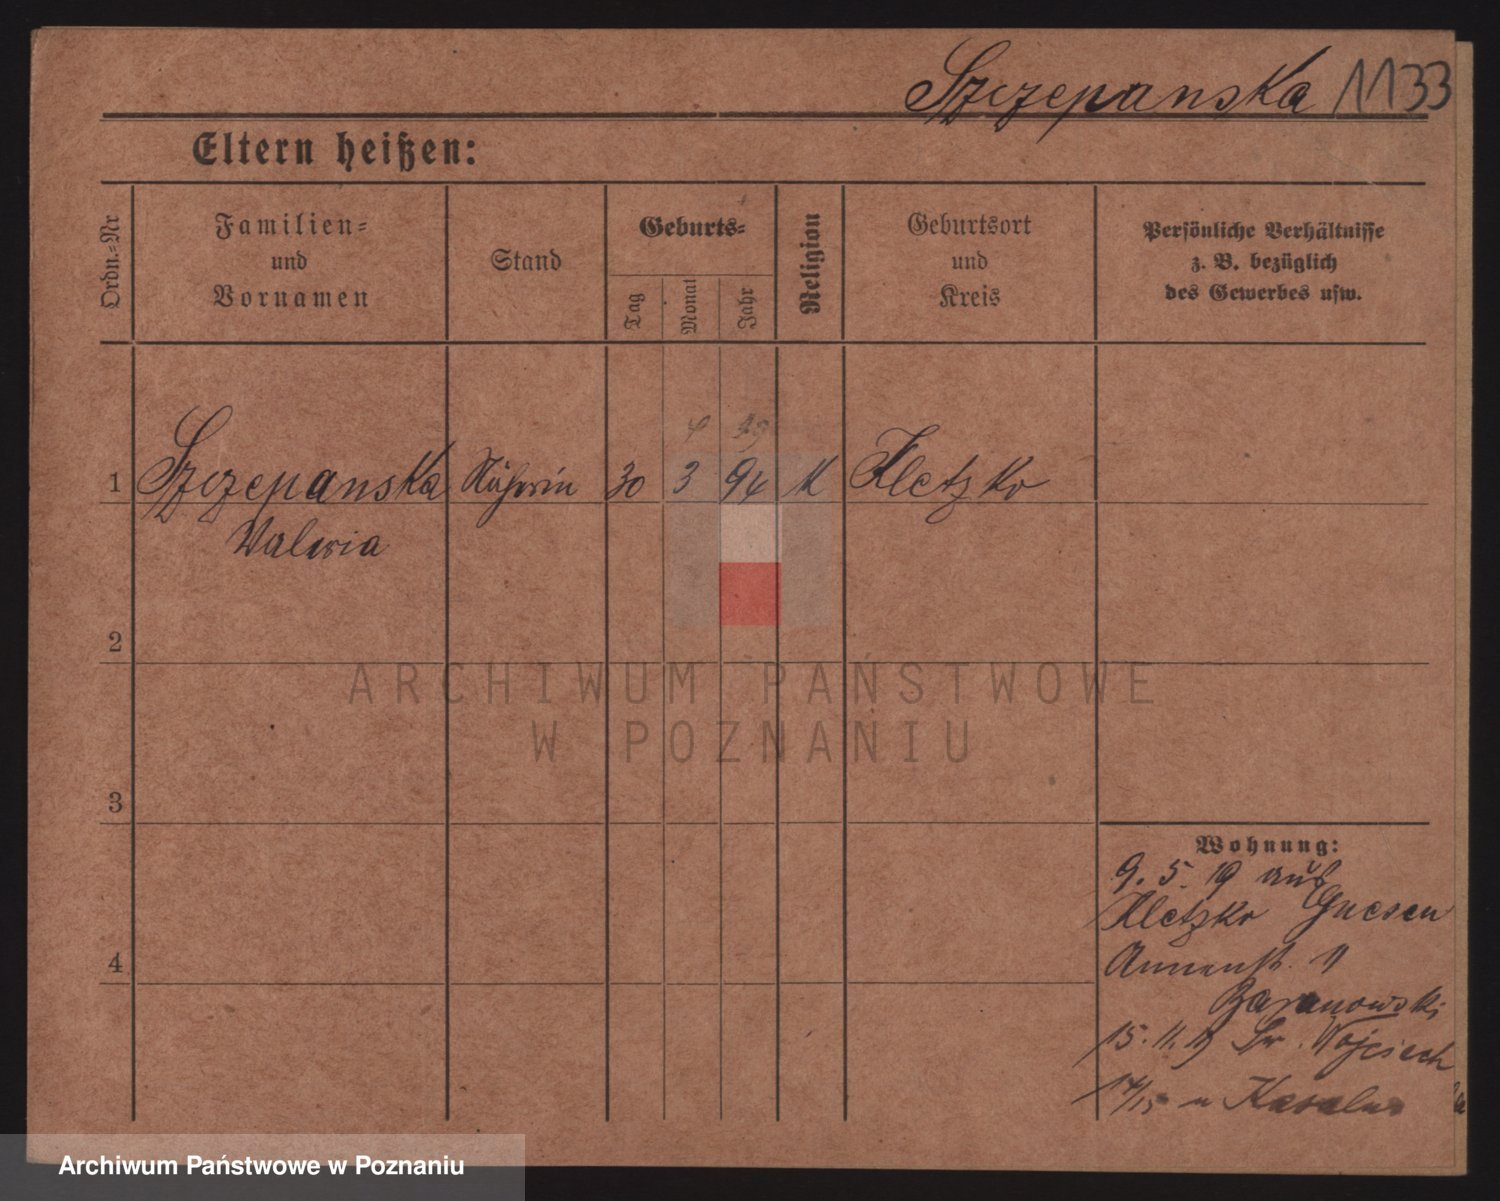 Szczepanska 1133
Eltern heißen:
Ordn.=Nr
Familien=
und
Vornamen
Stand
Geburts=
Tag
Monat
Jahr
Religion
Geburtsort
und
Kreis
Persönliche Verhältnisse
z. B. bezüglich
des Gewerbes usw.
1 Szczepanska Näherin 30 3 94 K Kletzko
Waleria
2
3
4
Wohnung:
9. 5. 19 aus
Kletzko Gnesen
Annenstr. 11
Baranowski
15. 11. 19 Św. Wojciech
14/15
ARCHIWUM PAŃSTWOWE
W POZNANIU
Archiwum Państwowe w Poznaniu